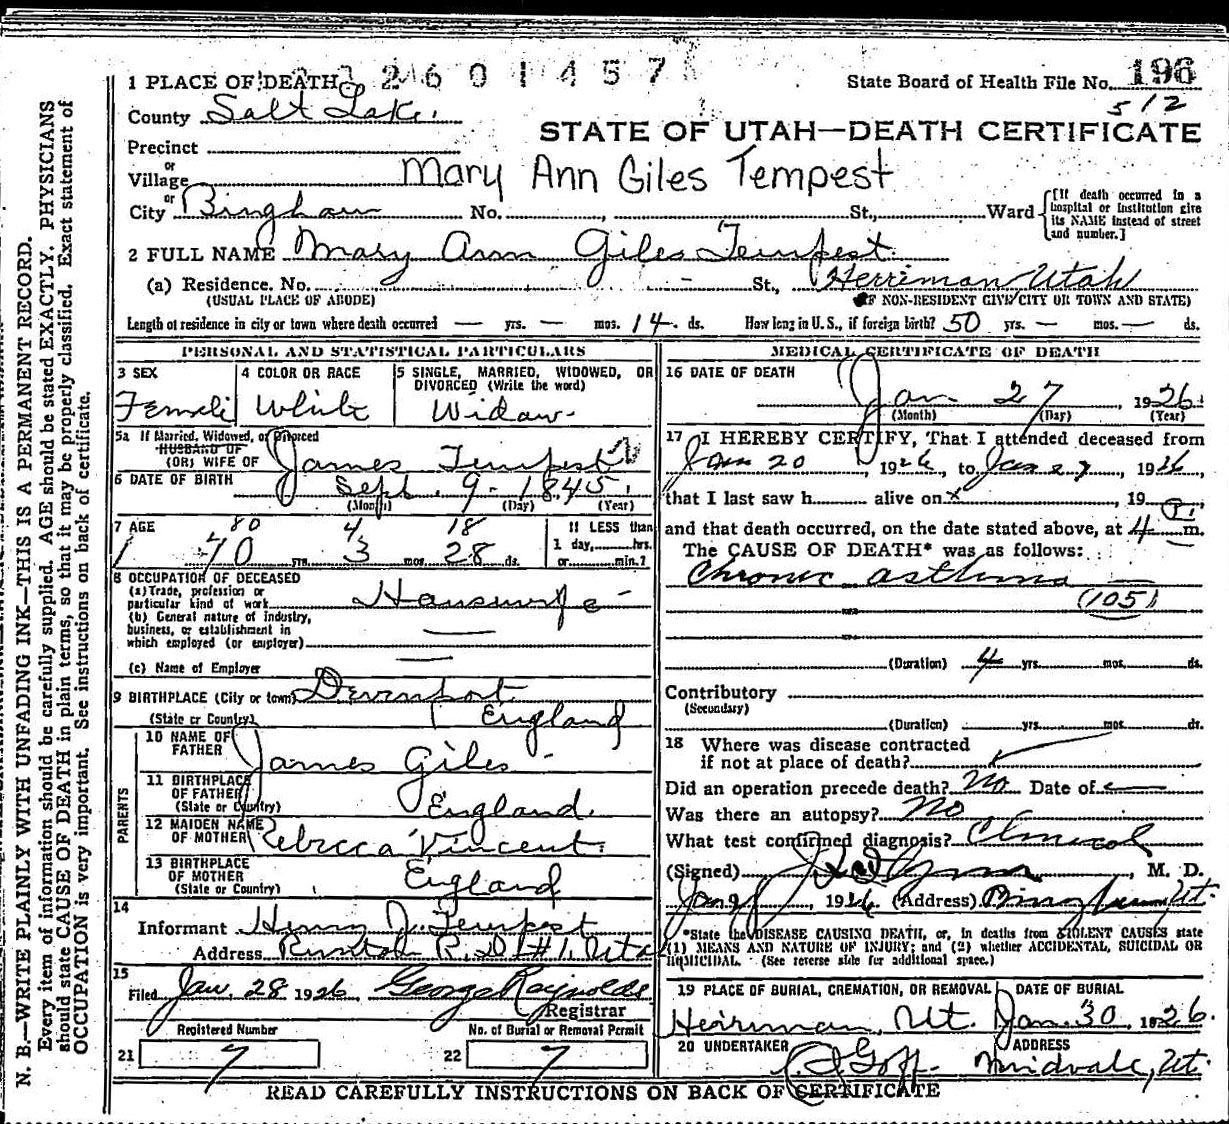 1 PLACE OF DEATH 2601457 State Board of Health File No. 196
County Salt Lake. 512
STATE OF UTAH—DEATH CERTIFICATE
Precinct
or
Village Mary Ann Giles Tempest
or
City Bingham No. , St., Ward [If death occurred in a hospital or institution give its NAME instead of street and number.]
2 FULL NAME Mary Ann Giles Tempest
(a) Residence. No. - St., Herriman Utah
(USUAL PLACE OF ABODE) (IF NON-RESIDENT GIVE CITY OR TOWN AND STATE)
Length of residence in city or town where death occurred — yrs. — mos. 14 ds. How long in U. S., if foreign birth? 50 yrs. — mos. — ds.
PERSONAL AND STATISTICAL PARTICULARS
3 SEX 4 COLOR OR RACE 5 SINGLE, MARRIED, WIDOWED, OR DIVORCED (Write the word)
Female White Widow
5a If Married, Widowed, or Divorced
HUSBAND OF
(OR) WIFE OF James Tempest
6 DATE OF BIRTH Sept. 9 - 1845.
(Month) (Day) (Year)
7 AGE 80 4 18 If LESS than
70 yrs. 3 mos. 28 ds. 1 day, hrs. or min.?
8 OCCUPATION OF DECEASED
(a) Trade, profession or
particular kind of work Housewife -
(b) General nature of industry,
business, or establishment in
which employed (or employer)
(c) Name of Employer
9 BIRTHPLACE (City or town) Devenport
(State or Country) England
PARENTS
10 NAME OF FATHER James Giles -
11 BIRTHPLACE OF FATHER (State or Country) England
12 MAIDEN NAME OF MOTHER Rebecca Vincent.
13 BIRTHPLACE OF MOTHER (State or Country) England
14
Informant Henry J. Tempest
Address R. D. # 1. Utah
15
Filed Jan. 28 1926 George Raynolds
Registrar
Registered Number No. of Burial or Removal Permit
21 7 22 7
MEDICAL CERTIFICATE OF DEATH
16 DATE OF DEATH
Jan 27, 1926
(Month) (Day) (Year)
17 I HEREBY CERTIFY, That I attended deceased from
Jan 20, 1926, to Jan 27, 1926
that I last saw h alive on x 19
and that death occurred, on the date stated above, at 4 P. m.
The CAUSE OF DEATH* was as follows:
Chronic asthma —
(105)
(Duration) 4 yrs. mos. ds.
Contributory
(Secondary)
(Duration) yrs. mos. ds.
18 Where was disease contracted
if not at place of death?
Did an operation precede death? No Date of
Was there an autopsy? No
What test confirmed diagnosis? Clinical
(Signed) , M. D.
1926 (Address)
*State the DISEASE CAUSING DEATH, or, in deaths from VIOLENT CAUSES state
(1) MEANS AND NATURE OF INJURY; and (2) whether ACCIDENTAL, SUICIDAL OR
HOMICIDAL. (See reverse side for additional space.)
19 PLACE OF BURIAL, CREMATION, OR REMOVAL DATE OF BURIAL
Herriman, Ut. Jan. 30, 1926.
20 UNDERTAKER ADDRESS
Goff Midvale, Ut.
READ CAREFULLY INSTRUCTIONS ON BACK OF CERTIFICATE
N. B.—WRITE PLAINLY WITH UNFADING INK—THIS IS A PERMANENT RECORD.
Every item of information should be carefully supplied. AGE should be stated EXACTLY. PHYSICIANS
should state CAUSE OF DEATH in plain terms, so that it may be properly classified. Exact statement of
OCCUPATION is very important. See instructions on back of certificate.